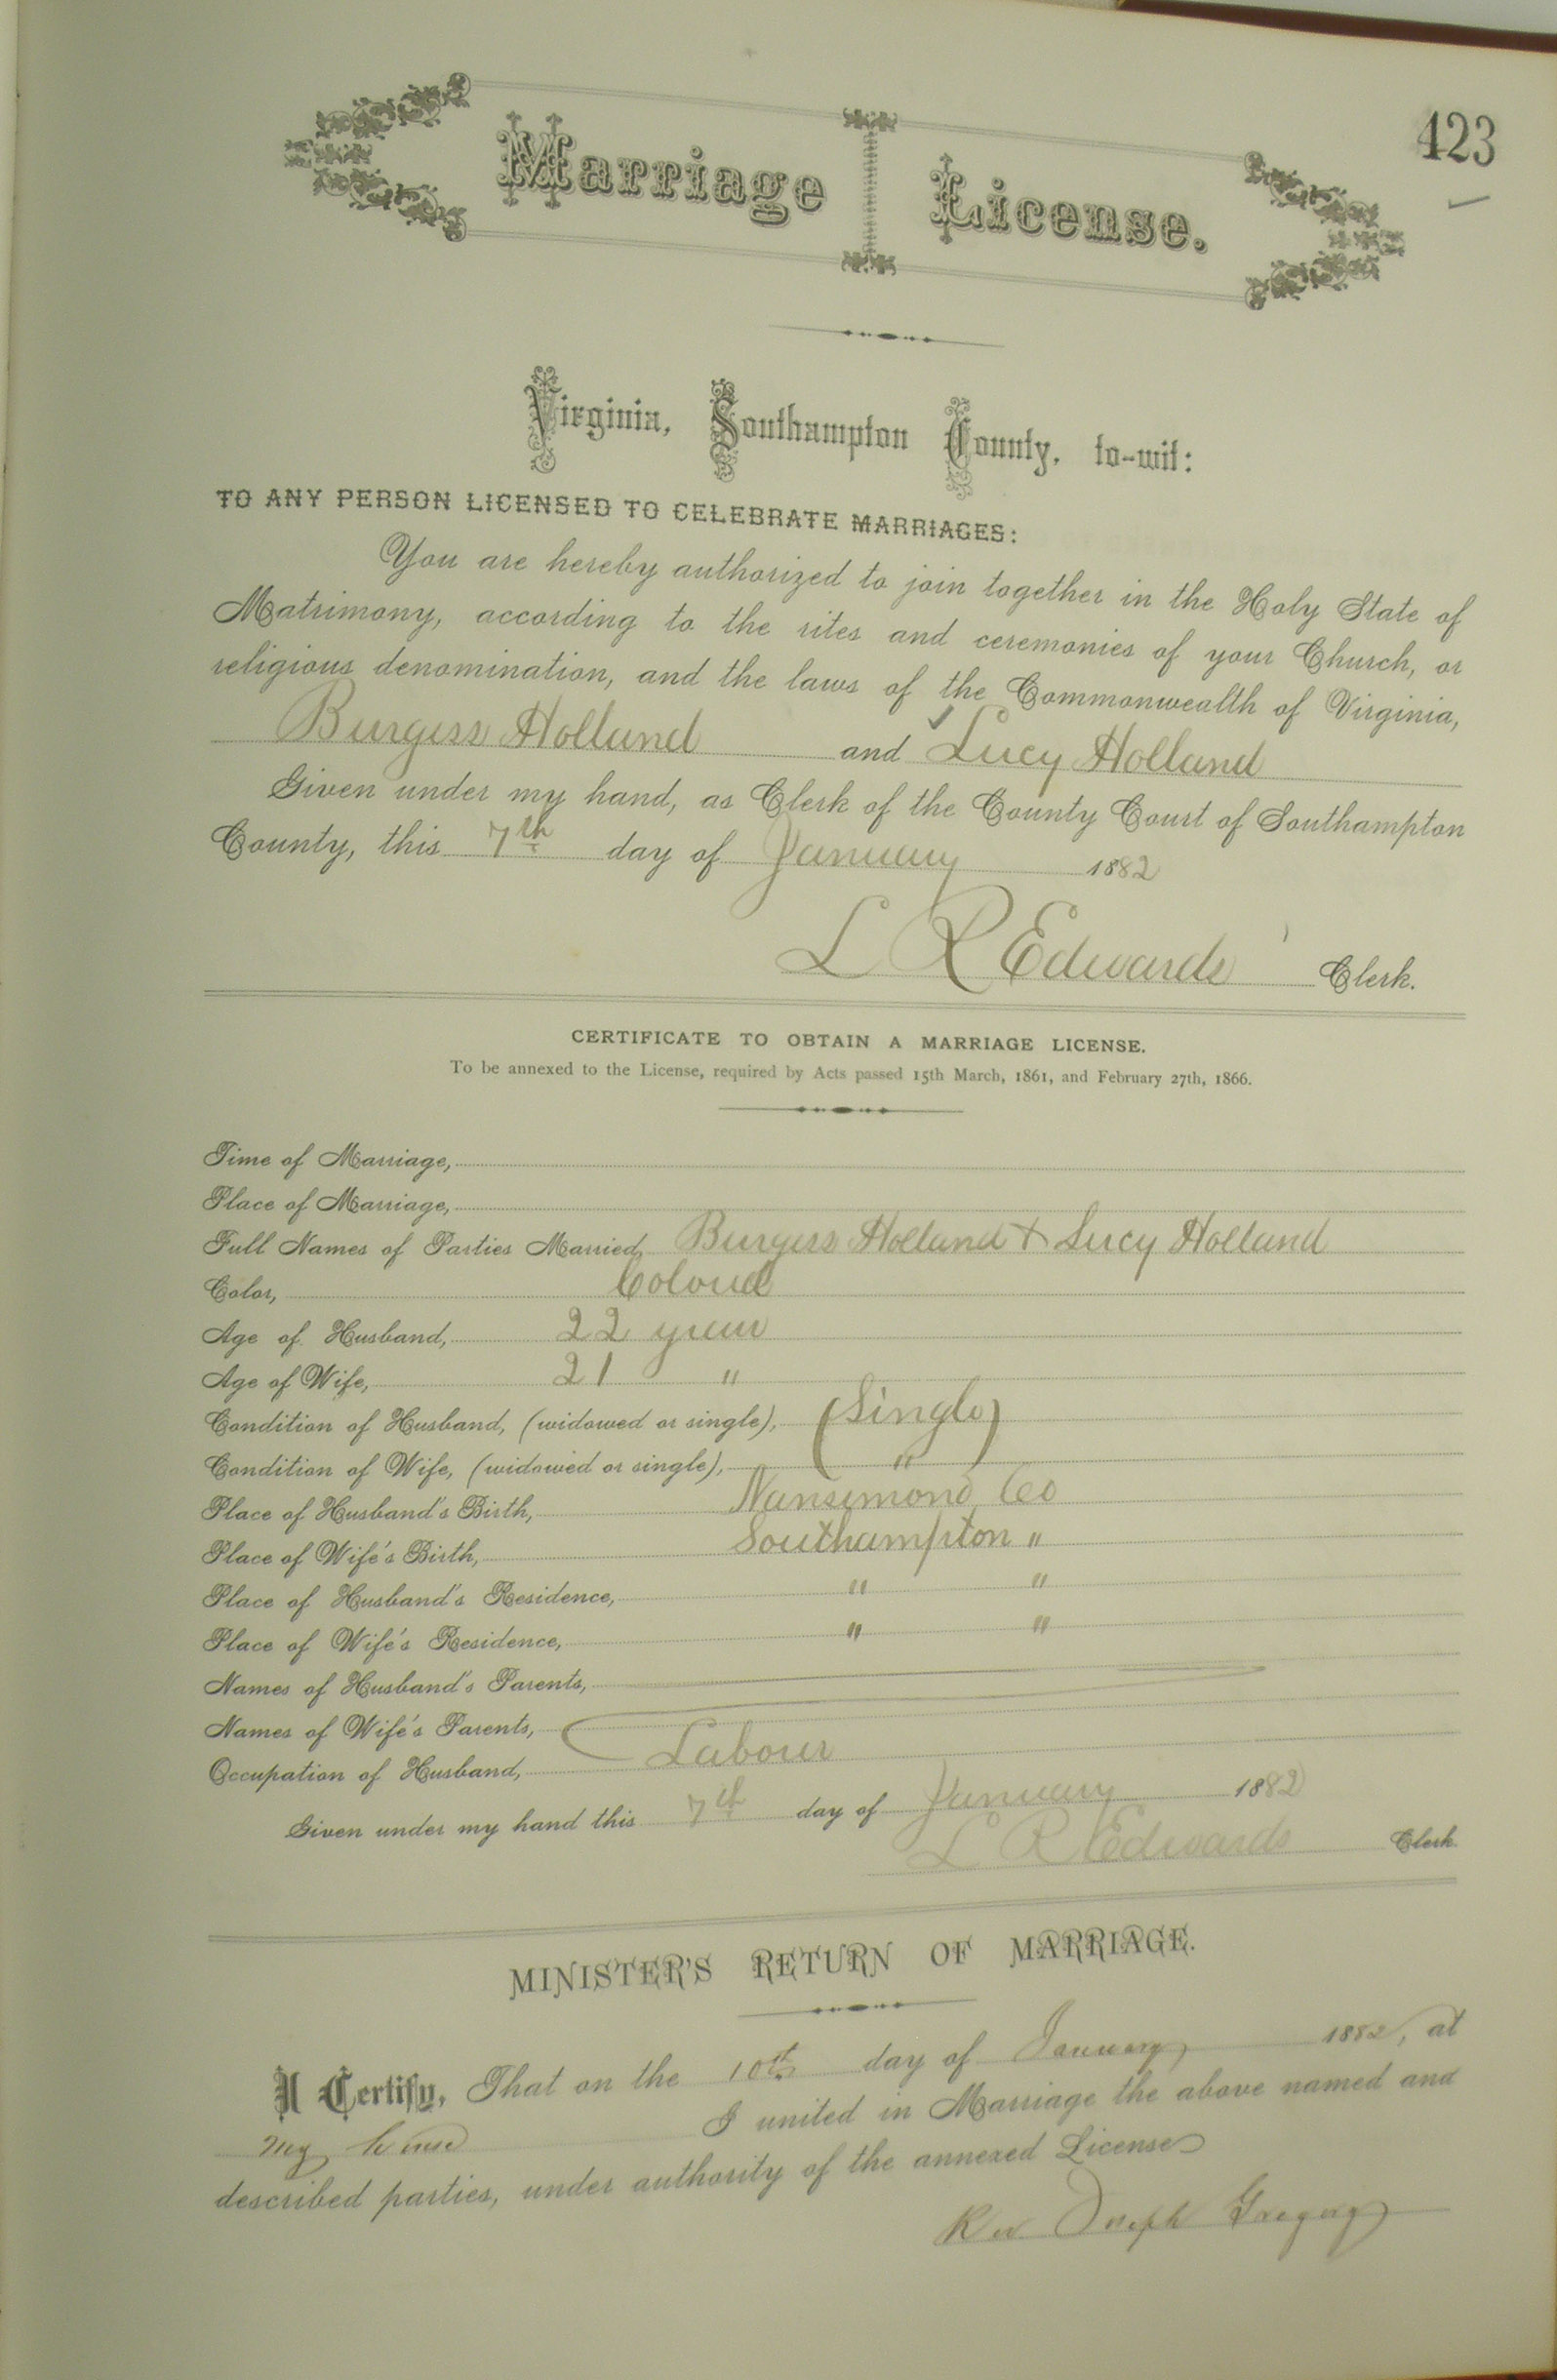 423
Marriage License.
Virginia, Southampton County, to-wit:
TO ANY PERSON LICENSED TO CELEBRATE MARRIAGES:
You are hereby authorized to join together in the Holy State of
Matrimony, according to the rites and ceremonies of your Church, or
religious denomination, and the laws of the Commonwealth of Virginia,
Burgess Holland and Lucy Holland
Given under my hand, as Clerk of the County Court of Southampton
County, this 7th day of January 1882
L R Edwards Clerk.
CERTIFICATE TO OBTAIN A MARRIAGE LICENSE.
To be annexed to the License, required by Acts passed 15th March, 1861, and February 27th, 1866.
Time of Marriage,
Place of Marriage,
Full Names of Parties Married, Burgess Holland + Lucy Holland
Color, Colored
Age of Husband, 22 years
Age of Wife, 21 "
Condition of Husband, (widowed or single), (Single)
Condition of Wife, (widowed or single), "
Place of Husband's Birth, Nansemond Co
Place of Wife's Birth, Southampton "
Place of Husband's Residence, " "
Place of Wife's Residence, " "
Names of Husband's Parents,
Names of Wife's Parents,
Occupation of Husband, Labour
Given under my hand this 7th day of January 1882
L R Edwards Clerk.
MINISTER'S RETURN OF MARRIAGE.
I Certify, That on the 10th day of January 1882, at
my house I united in Marriage the above named and
described parties, under authority of the annexed License
Rev Joseph Gregory